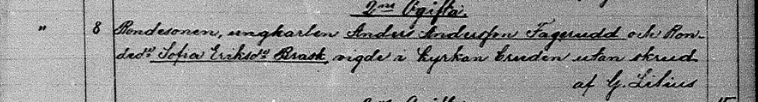 2ne Ogifta.
" 8 Bondesonen, ungkarlen Anders Andersson Fagerudd och Bon-
ded:r Sofia Eriksd:r Brask, vigde i kyrkan bruden utan skrud
af G. Lilius